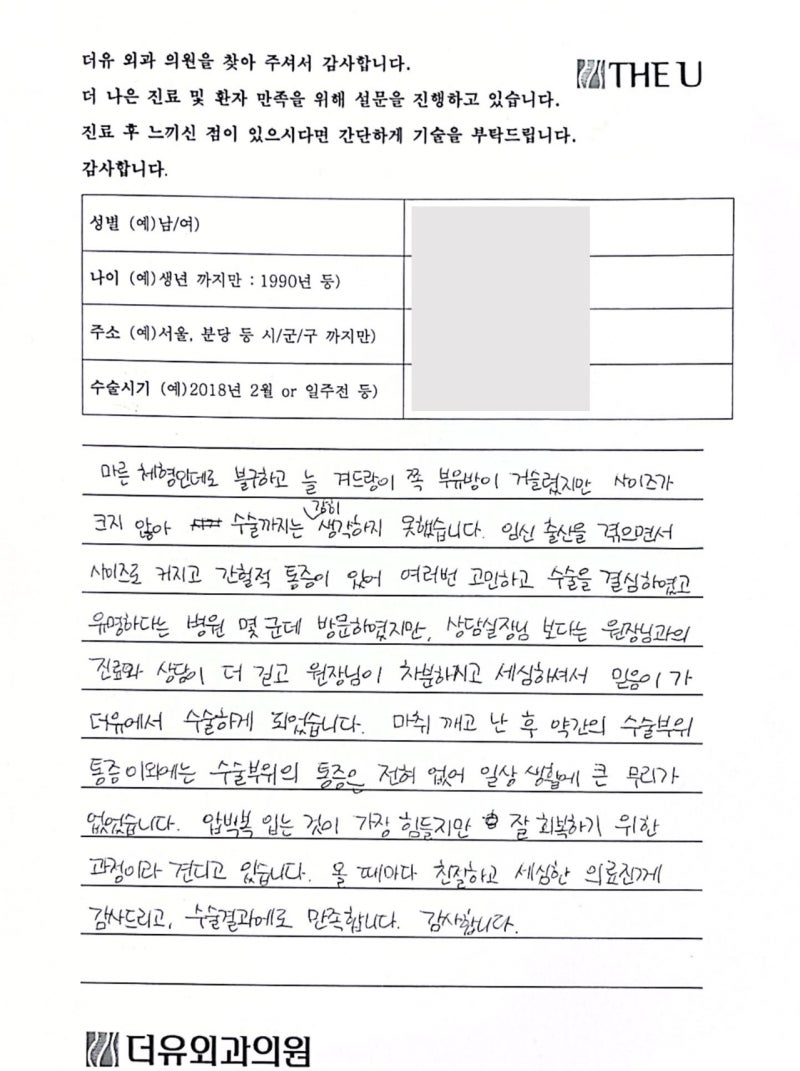 더유 외과 의원을 찾아 주셔서 감사합니다.
THE U
더 나은 진료 및 환자 만족을 위해 설문을 진행하고 있습니다.
진료 후 느끼신 점이 있으시다면 간단하게 기술을 부탁드립니다.
감사합니다.
성별 (예)남/여)
나이 (예)생년 까지만 : 1990년 등)
주소 (예)서울, 분당 등 시/군/구 까지만)
수술시기 (예)2018년 2월 or 일주전 등)
마른 체형인데도 불구하고 늘 겨드랑이 쪽 부유방이 거슬렸지만 사이즈가
크지 않아 수술까지는 감히 생각하지 못했습니다. 임신 출산을 겪으면서
사이즈도 커지고 간헐적 통증이 있어 여러번 고민하고 수술을 결심하였고
유명하다는 병원 몇 군데 방문하였지만, 상담실장님 보다는 원장님과의
진료와 상담이 더 길고 원장님이 차분하시고 세심하셔서 믿음이 가
더유에서 수술하게 되었습니다. 마취 깨고 난 후 약간의 수술부위
통증이외에는 수술부위의 통증은 전혀 없어 일상 생활에 큰 무리가
없었습니다. 압박복 입는 것이 가장 힘들지만 잘 회복하기 위한
과정이라 견디고 있습니다. 올 때마다 친절하고 세심한 의료진께
감사드리고, 수술결과에도 만족합니다. 감사합니다.
더유외과의원